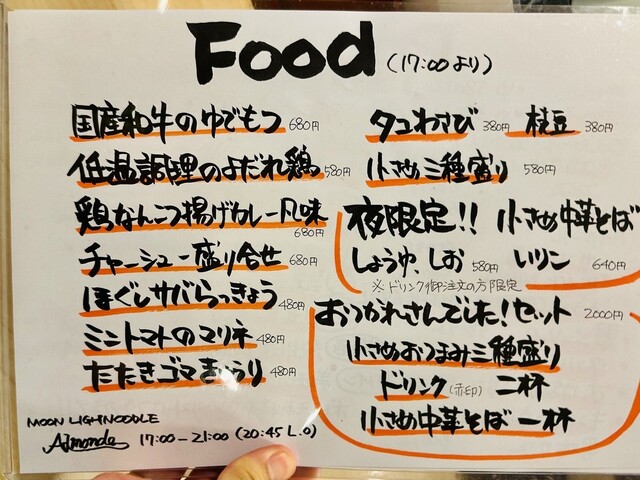 Food (17:00より)
国産和牛のゆでもつ 680円
低温調理のよだれ鶏 580円
鶏なんこつ揚げカレー風味 680円
チャーシュー盛り合せ 680円
ほぐしサバらっきょう 480円
ミニトマトのマリネ 480円
たたきゴマきゅうり 480円
MOON LIGHNOODLE
Ajmonde 17:00-21:00 (20:45 L.O)
タコわさび 380円 枝豆 380円
小さめ三種盛り 580円
夜限定!! 小さめ中華そば
しょうゆ、しお 580円 いりこ 640円
※ドリンク御注文の方限定
おつかれさんでした!セット 2000円
小さめおつまみ三種盛り
ドリンク(赤印) 二杯
小さめ中華そば一杯